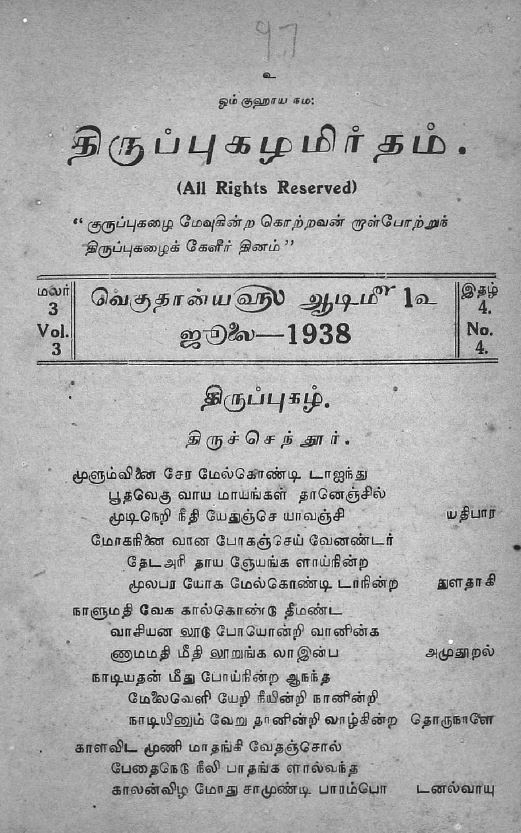 97
உ
ஓம் குஹாய நம:
திருப்புகழமிர்தம்.
(All Rights Reserved)
“ குருப்புகழை மேவுகின்ற கொற்றவன் றாள்போற்றுந்
திருப்புகழைக் கேளீர் தினம் ”
மலர் 3
Vol. 3
வெகுதான்ய௵ ஆடி௴ 1உ
ஜூலை—1938
இதழ் 4.
No. 4.
திருப்புகழ்.
திருச்செந்தூர்.
மூளும்வினை சேர மேல்கொண்டி டாஐந்து
பூதவெகு வாய மாயங்கள் தானெஞ்சில்
முடிநெறி நீதி யேதுஞ்செ யாவஞ்சி யதிபார
மோகநினை வான போகஞ்செய் வேனண்டர்
தேடஅரி தாய ஞேயங்க ளாய்நின்ற
மூலபர யோக மேல்கொண்டி டாநின்ற துளதாகி
நாளுமதி வேக கால்கொண்டு தீமண்ட
வாசியன லூடு போயொன்றி வானின்க
ணாமமதி மீதி லூறுங்க லாஇன்ப அமுதூறல்
நாடியதன் மீது போய்நின்ற ஆநந்த
மேலைவெளி யேறி நீயின்றி நானின்றி
நாடியினும் வேறு தானின்றி வாழ்கின்ற தொருநாளே
காளவிட மூணி மாதங்கி வேதஞ்சொல்
பேதைநெடு நீலி பாதங்க ளால்வந்த
காலன்விழ மோது சாமுண்டி பாரம்பொ டனல்வாயு